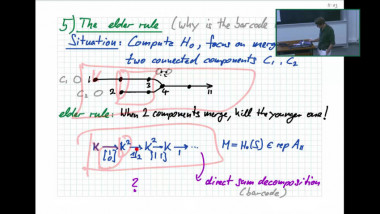 5) The elder rule (why is the barcode
Situation: Compute H₀, focus on merg
two connected components C₁, C₂
C₁ 1 3
C₂ 2 4 n
elder rule: When 2 components merge, kill the younger one!
K → K² → K² → K → ...
[1 0] 1₂ [1 1] 1
M = H₀(S) ∈ rep Aₙ
?
direct sum decomposition
(barcode)